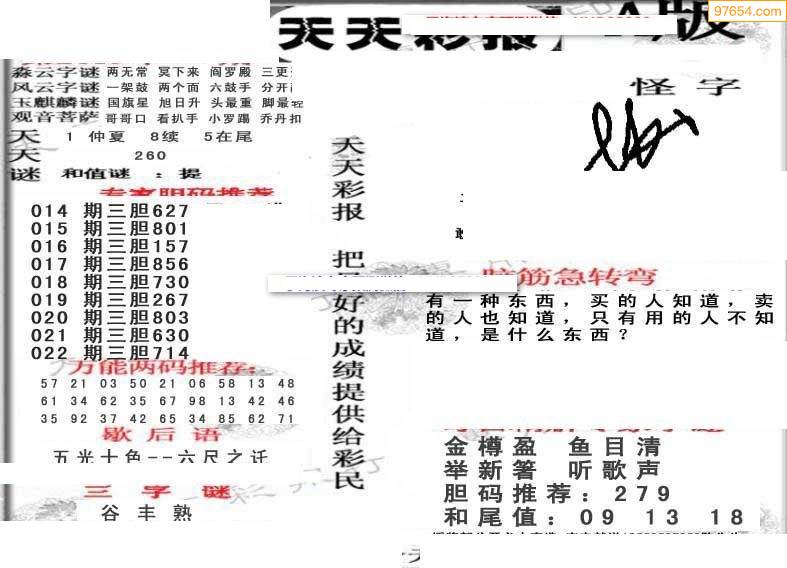 97654.com
天天彩报
A版
淼云字谜 两无常 冥下来 阎罗殿 三更
风云字谜 一架鼓 两个面 六鼓手 分开
玉麒麟谜 国旗星 旭日升 头最重 脚最轻
观音菩萨 哥哥口 看扒手 小罗踢 乔丹扣
天 1 仲夏 8续 5在尾
天 260
谜 和值谜 : 提
专家胆码推荐
014 期三胆627
015 期三胆801
016 期三胆157
017 期三胆856
018 期三胆730
019 期三胆267
020 期三胆803
021 期三胆630
022 期三胆714
万能两码推荐:
57 21 03 50 21 06 58 13 48
61 34 62 35 67 98 13 42 46
35 92 37 42 65 34 85 62 71
歇后语
五光十色--六尺之讬
三字谜
谷丰熟
天天彩报 把最好的成绩提供给彩民
怪字
脑筋急转弯
有一种东西，买的人知道，卖
的人也知道，只有用的人不知
道，是什么东西？
金樽盈 鱼目清
举新箸 听歌声
胆码推荐: 279
和尾值: 09 13 18